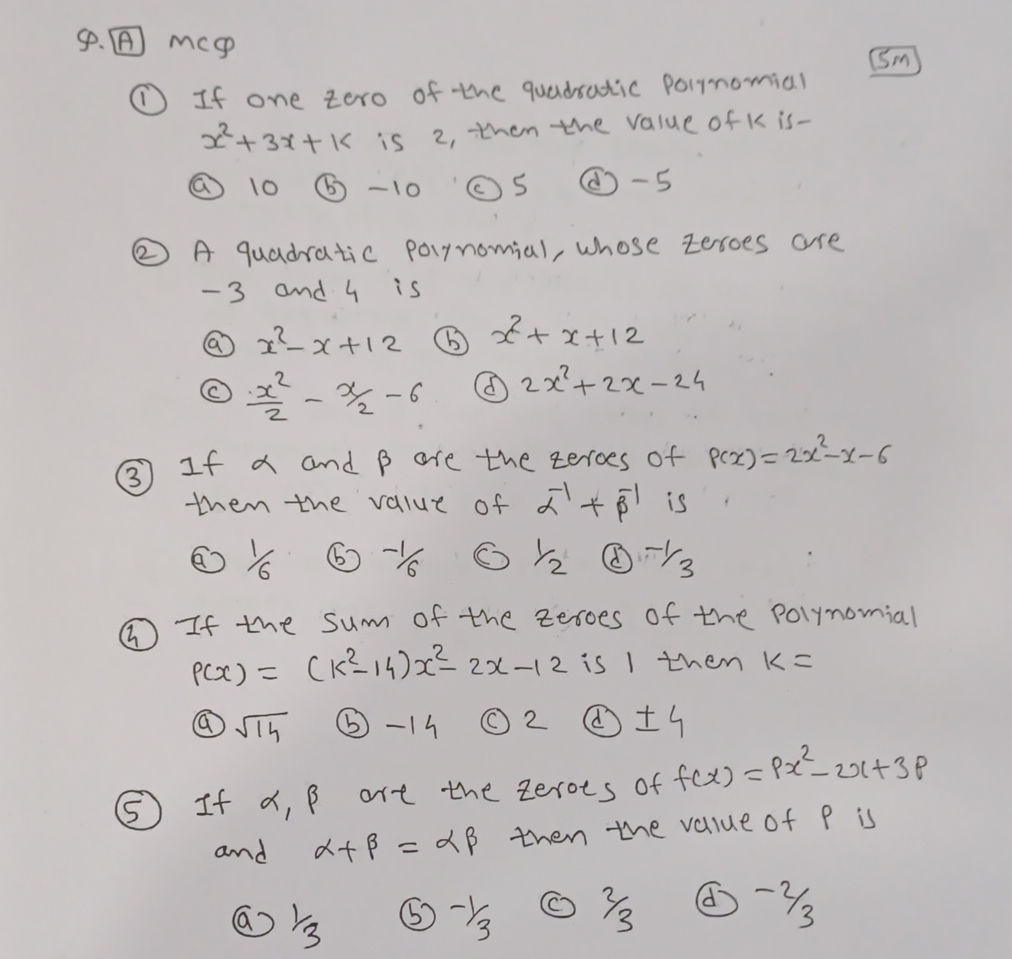 Q. [A] MCQ [5M]
① If one zero of the quadratic polynomial
x²+3x+k is 2, then the value of k is-
ⓐ 10 ⓑ -10 ⓒ 5 ⓓ -5
② A quadratic polynomial, whose zeroes are
-3 and 4 is
ⓐ x²-x+12 ⓑ x²+x+12
ⓒ x²/2 - x/2 - 6 ⓓ 2x²+2x-24
③ If α and β are the zeroes of p(x)=2x²-x-6
then the value of α⁻¹+β⁻¹ is
ⓐ 1/6 ⓑ -1/6 ⓒ 1/2 ⓓ -1/3
④ If the sum of the zeroes of the polynomial
p(x) = (k²-14)x²-2x-12 is 1 then k=
ⓐ √14 ⓑ -14 ⓒ 2 ⓓ ±4
⑤ If α, β are the zeroes of f(x)=px²-2x+3p
and α+β = αβ then the value of p is
ⓐ 1/3 ⓑ -1/3 ⓒ 2/3 ⓓ -2/3